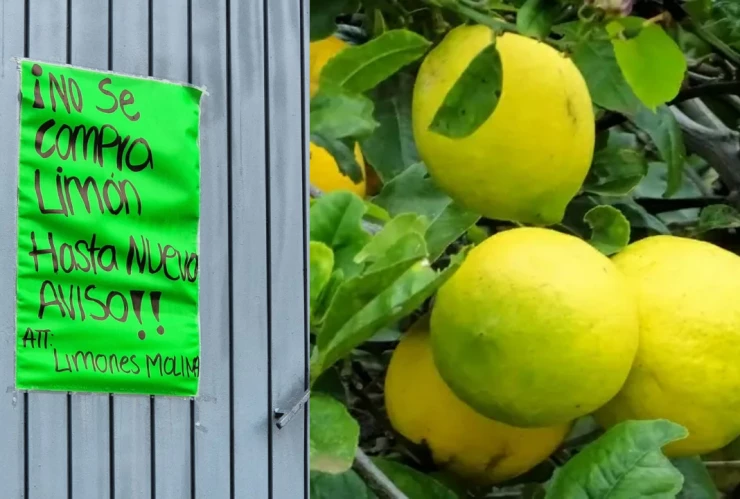 ¡NO Se
Compra
Limón
Hasta Nuevo
AVISO!!
ATT:
Limones MOLINA